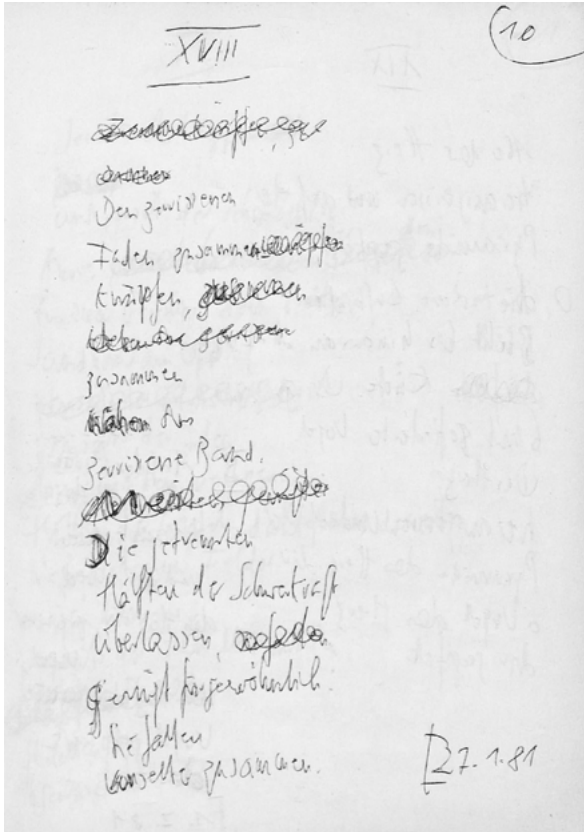 XVIII
10
Den zerrissenen
Faden zusammen
knüpfen,
zusammen
nähen das
zerrissene Band.
Die getrennten
Hälften der Schwerkraft
überlassen,
genügt für gewöhnlich.
Sie fallen
von selbst zusammen.
27.1.81